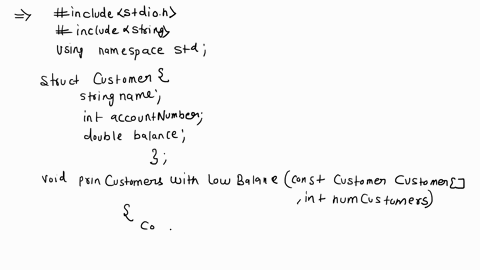 ⇒ #include <stdio.h>
#include <string>
using namespace std;
struct Customer {
string name;
int accountNumber;
double balance;
};
void prinCustomers with low Balane (const Customer Customer[]
, int numCustomers)
{
Co .